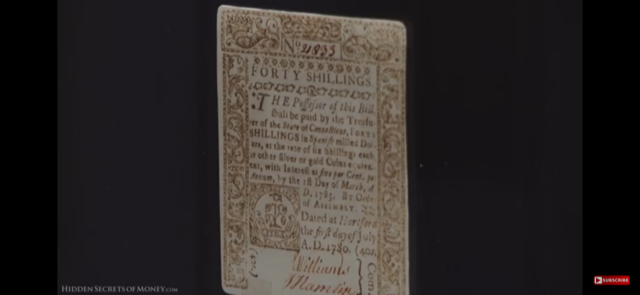 No 21835
FORTY SHILLINGS.
THE Possessor of this Bill,
shall be paid by the Treasu-
rer of the State of Connecticut, FORTY
SHILLINGS in Spanish milled Dol-
lars, at the rate of six Shillings each,
or other Silver or gold Coins equiva-
lent, with Interest at five per Cent. per
Annum, by the 1st Day of March, A.
D. 1785. By Order
of ASSEMBLY.
Dated at Hartford
the first day of July
A. D. 1780. (40s.
Williams
Hamlin
HIDDEN SECRETS OF MONEY.COM
SUBSCRIBE